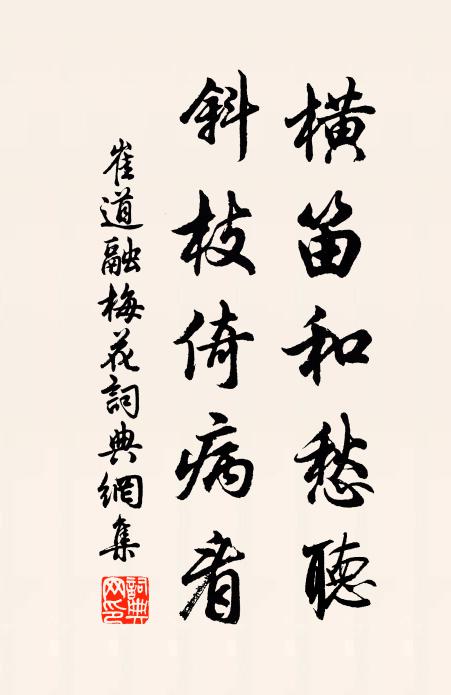 橫笛和愁聽
斜枝倚病看
崔道融梅花詞典網集
詞典网印